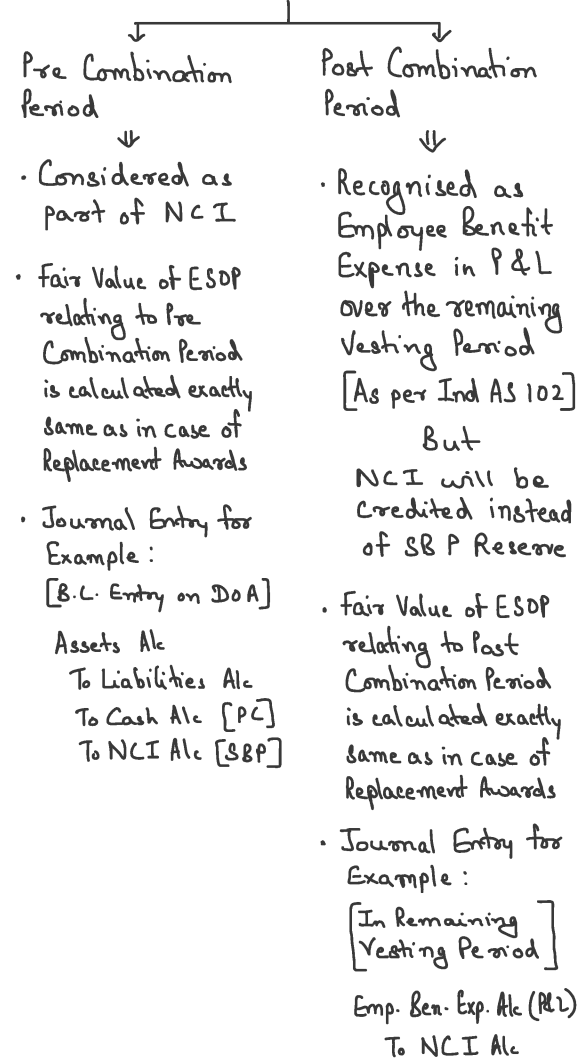 Pre Combination
Period
⇓
• Considered as
part of NCI
• Fair Value of ESOP
relating to Pre
Combination Period
is calculated exactly
same as in case of
Replacement Awards
• Journal Entry for
Example :
[B.C. Entry on DoA]
Assets A/c
To Liabilities A/c
To Cash A/c [PC]
To NCI A/c [SBP]
Post Combination
Period
⇓
• Recognised as
Employee Benefit
Expense in P & L
over the remaining
Vesting Period
[As per Ind AS 102]
But
NCI will be
Credited instead
of SBP Reserve
• Fair Value of ESOP
relating to Post
Combination Period
is calculated exactly
same as in case of
Replacement Awards
• Journal Entry for
Example :
[In Remaining
Vesting Period]
Emp. Ben. Exp. A/c (P&L)
To NCI A/c